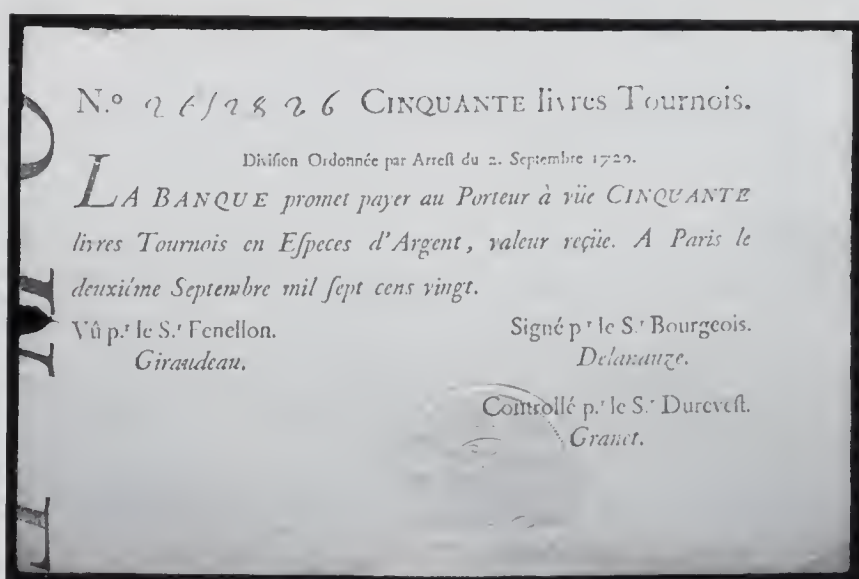 N.º CINQUANTE livres Tournois.
Division Ordonnée par Arrest du 2. Septembre 1720.
LA BANQUE promet payer au Porteur à vüe CINQUANTE
livres Tournois en Especes d'Argent, valeur reçüe. A Paris le
deuxiéme Septembre mil sept cens vingt.
Vû p.r le S.r Fenellon.
Giraudeau.
Signé p.r le S.r Bourgeois.
Delanauze.
Controllé p.r le S.r Durevest.
Granet.